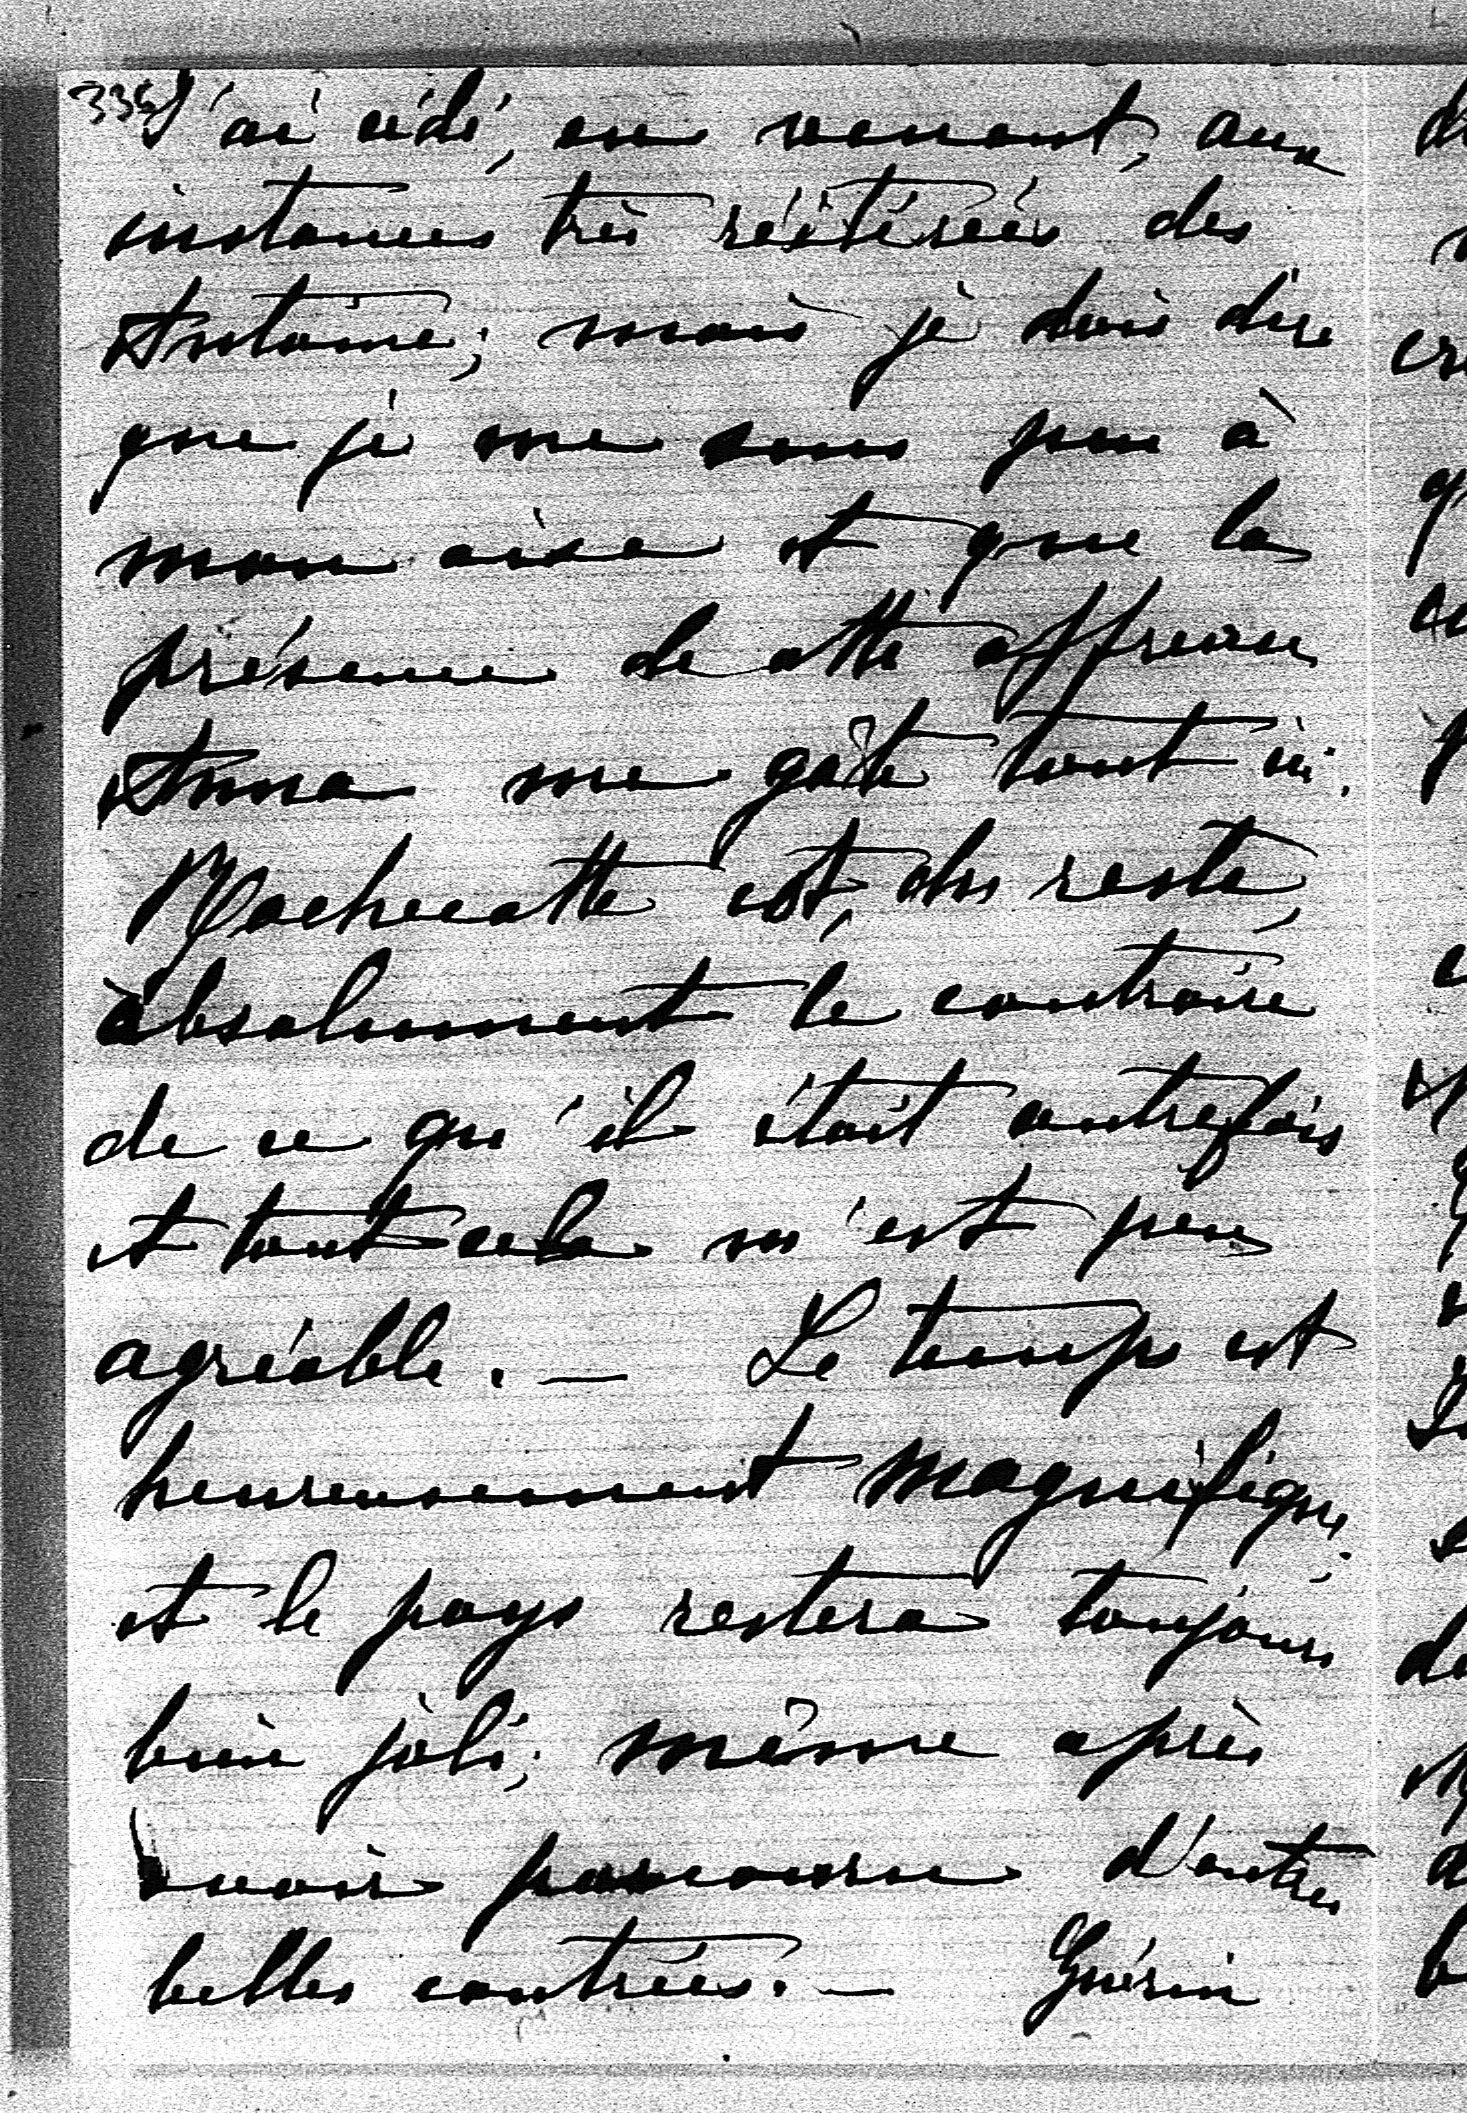 335 J'ai cédé, en venant, aux
instances très réitérées des
Antoine; mais je dois dire
que je me sens peu à
mon aise et que la
présence de cette affreuse
Anna me gâte tout ici.
Rochecotte est, du reste,
absolument le contraire
de ce qu'il était autrefois
et tout cela m'est peu
agréable. — Le temps est
heureusement magnifique;
et le pays restera toujours
bien joli, même après
avoir parcouru d'autres
belles contrées. — Guérin